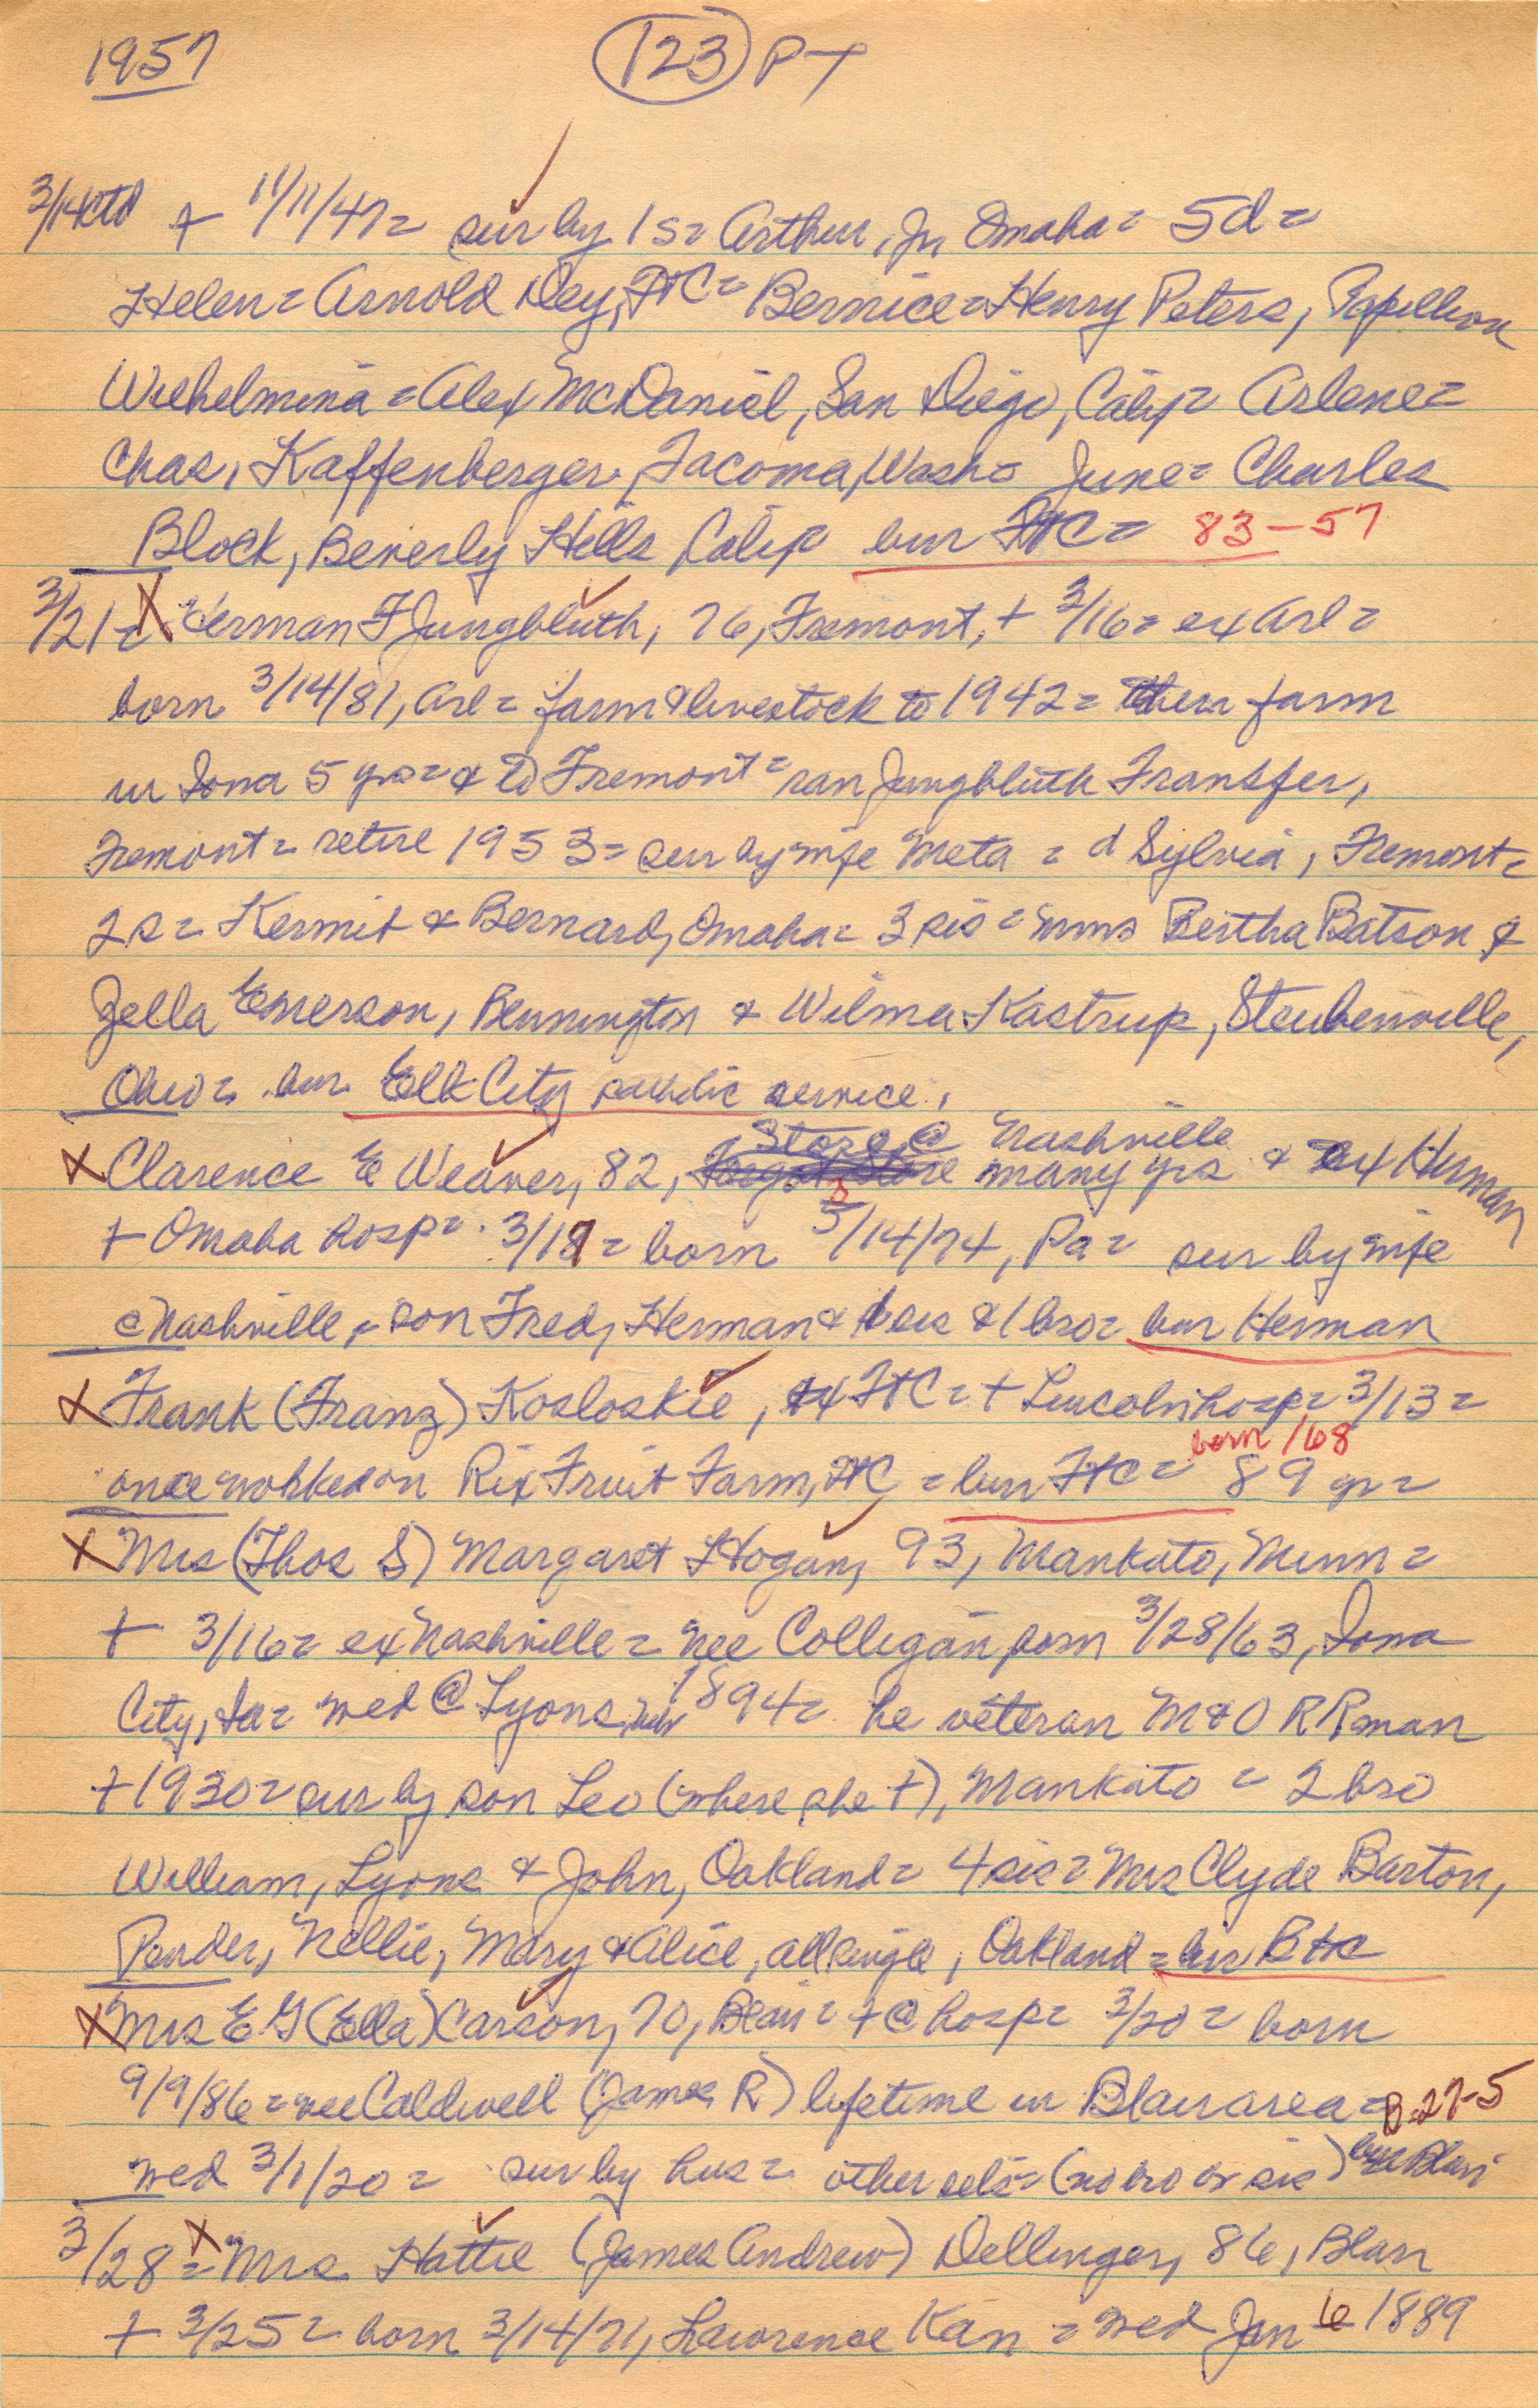 1957 (123) PT
3/14 ctd + 11/11/47 = sur by 1 s = Arthur, Jr, Omaha = 5 d =
Helen = Arnold Dey, FtC = Bernice = Henry Peters, Papillion
Wilhelmina = Alex McDaniel, San Diego, Calif = Arlene =
Chas, Kaffenberger, Tacoma, Wash = June = Charles
Block, Beverly Hills Calif = bur FtC = 83-57
3/21 = X Herman F Jungbluth, 76, Fremont, + 3/16 = ex Arl =
born 3/14/81, Arl = farm & livestock to 1942 = then farm
in Iowa 5 yrs = & to Fremont = ran Jungbluth Transfer,
Fremont = retire 1953 = sur by wife Meta = d Sylvia, Fremont =
2 s = Kermit & Bernard, Omaha = 3 sis = Mms Bertha Batson &
Zella Emerson, Bennington & Wilma Kastrup, Steubenville,
Ohio = bur Elk City service.
Store @ Nashville
X Clarence E Weaver, 82, many yrs & ex Herman
+ Omaha hosp = 3/17 = born 3/14/74, Pa = sur by wife
@ Nashville, son Fred, Herman & 1 sis & 1 bro = bur Herman
X Frank (Franz) Kosloskie, ex FtC = + Lincoln hosp = 3/13 =
born /68
once worked on Rix Fruit Farm, FtC = bur FtC = 89 yr =
X Mrs (Thos S) Margaret Hogan, 93, Mankato, Minn =
+ 3/16 = ex Nashville = nee Colligan born 3/28/63, Iowa
City, Ia = wed @ Lyons, Neb 1894 = he veteran M & O RR man
+ 1930 = sur by son Leo (where she +), Mankato = 2 bro
William, Lyons & John, Oakland = 4 sis = Mrs Clyde Barton,
Pender, Nellie, Mary & Alice, all single, Oakland = bur
X Mrs E G (Ella) Carson, 70, Blair = + @ hosp = 3/20 = born
9/9/86 = nee Caldwell (James R) lifetime in Blair area = B-27-5
wed 3/1/20 = sur by hus = other rels = (no bro or sis) bur Blair
3/28 = X Mrs Hattie (James Andrew) Dellinger, 86, Blair
+ 3/25 = born 3/14/71, Lawrence Kan = wed Jan 6 1889